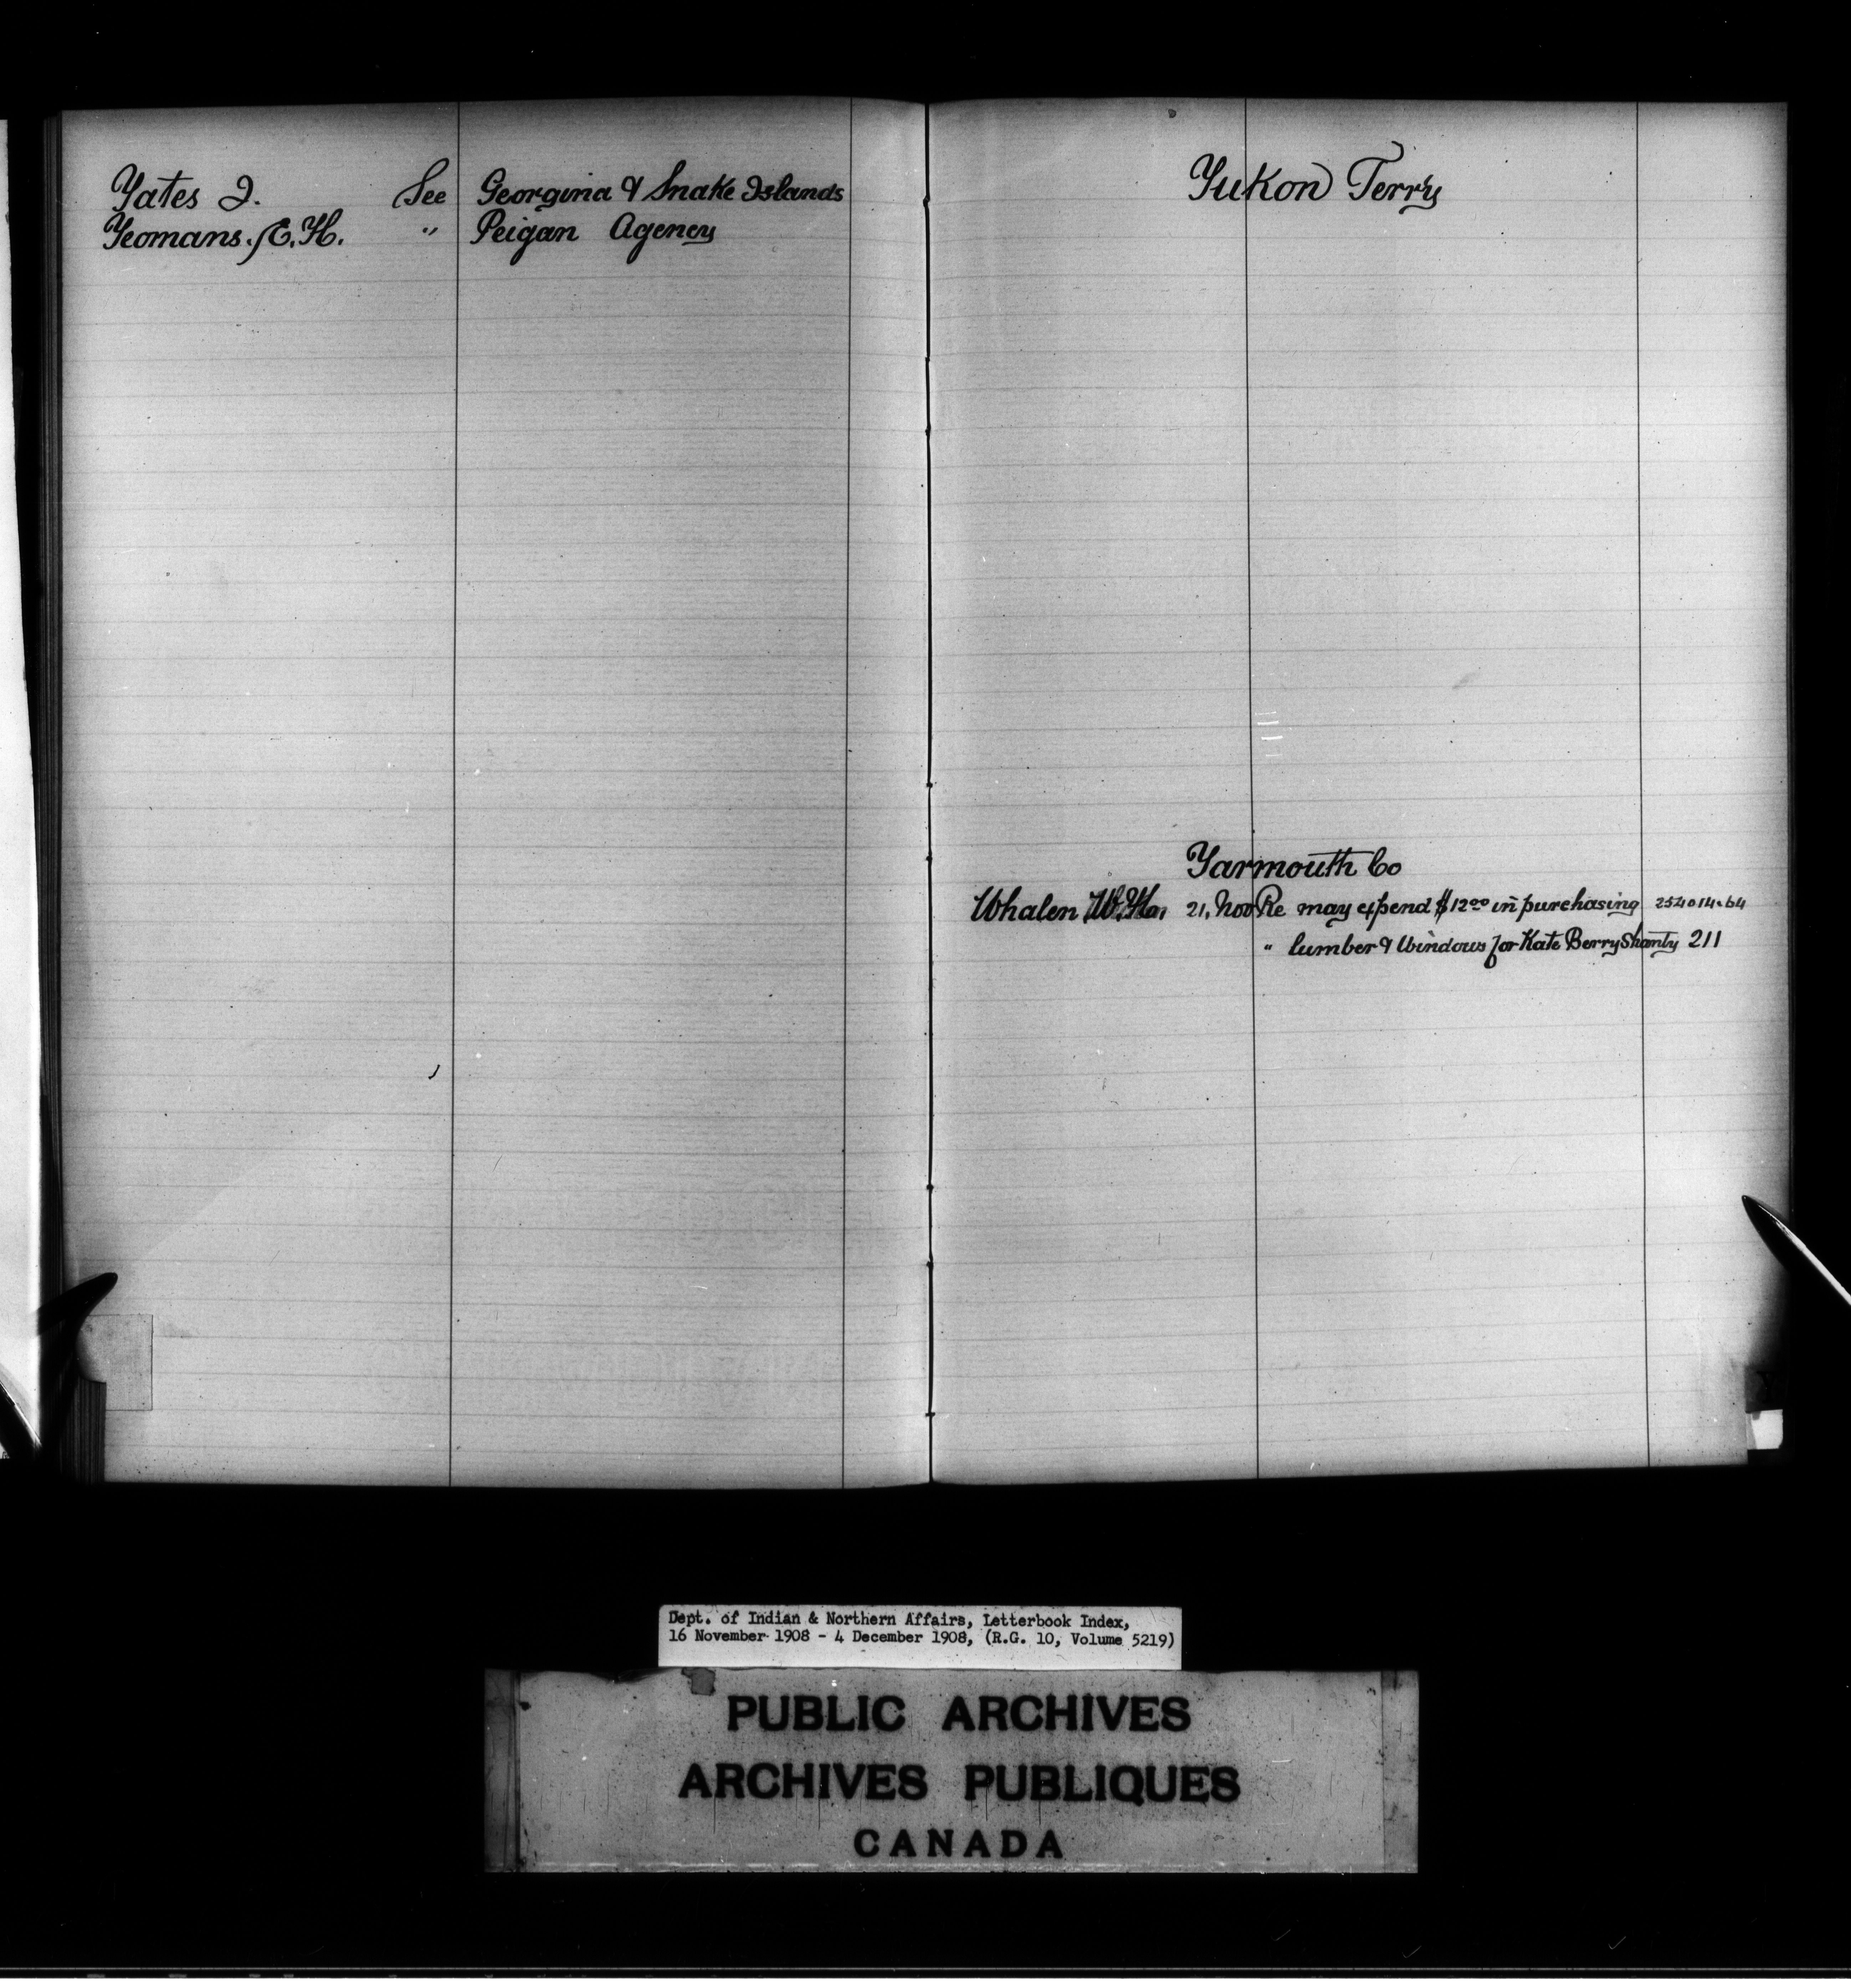 Yates I. See Georgina & Snake Islands
Yeomans. E. H. " Peigan Agency
Yukon Terry
Yarmouth Co
Whalen W.H. 21, Nov Re may expend $12.00 in purchasing 254014-64
" lumber & windows for Kate Berry Shanty 211
Dept. of Indian & Northern Affairs, Letterbook Index,
16 November 1908 - 4 December 1908, (R.G. 10, Volume 5219)
PUBLIC ARCHIVES
ARCHIVES PUBLIQUES
CANADA